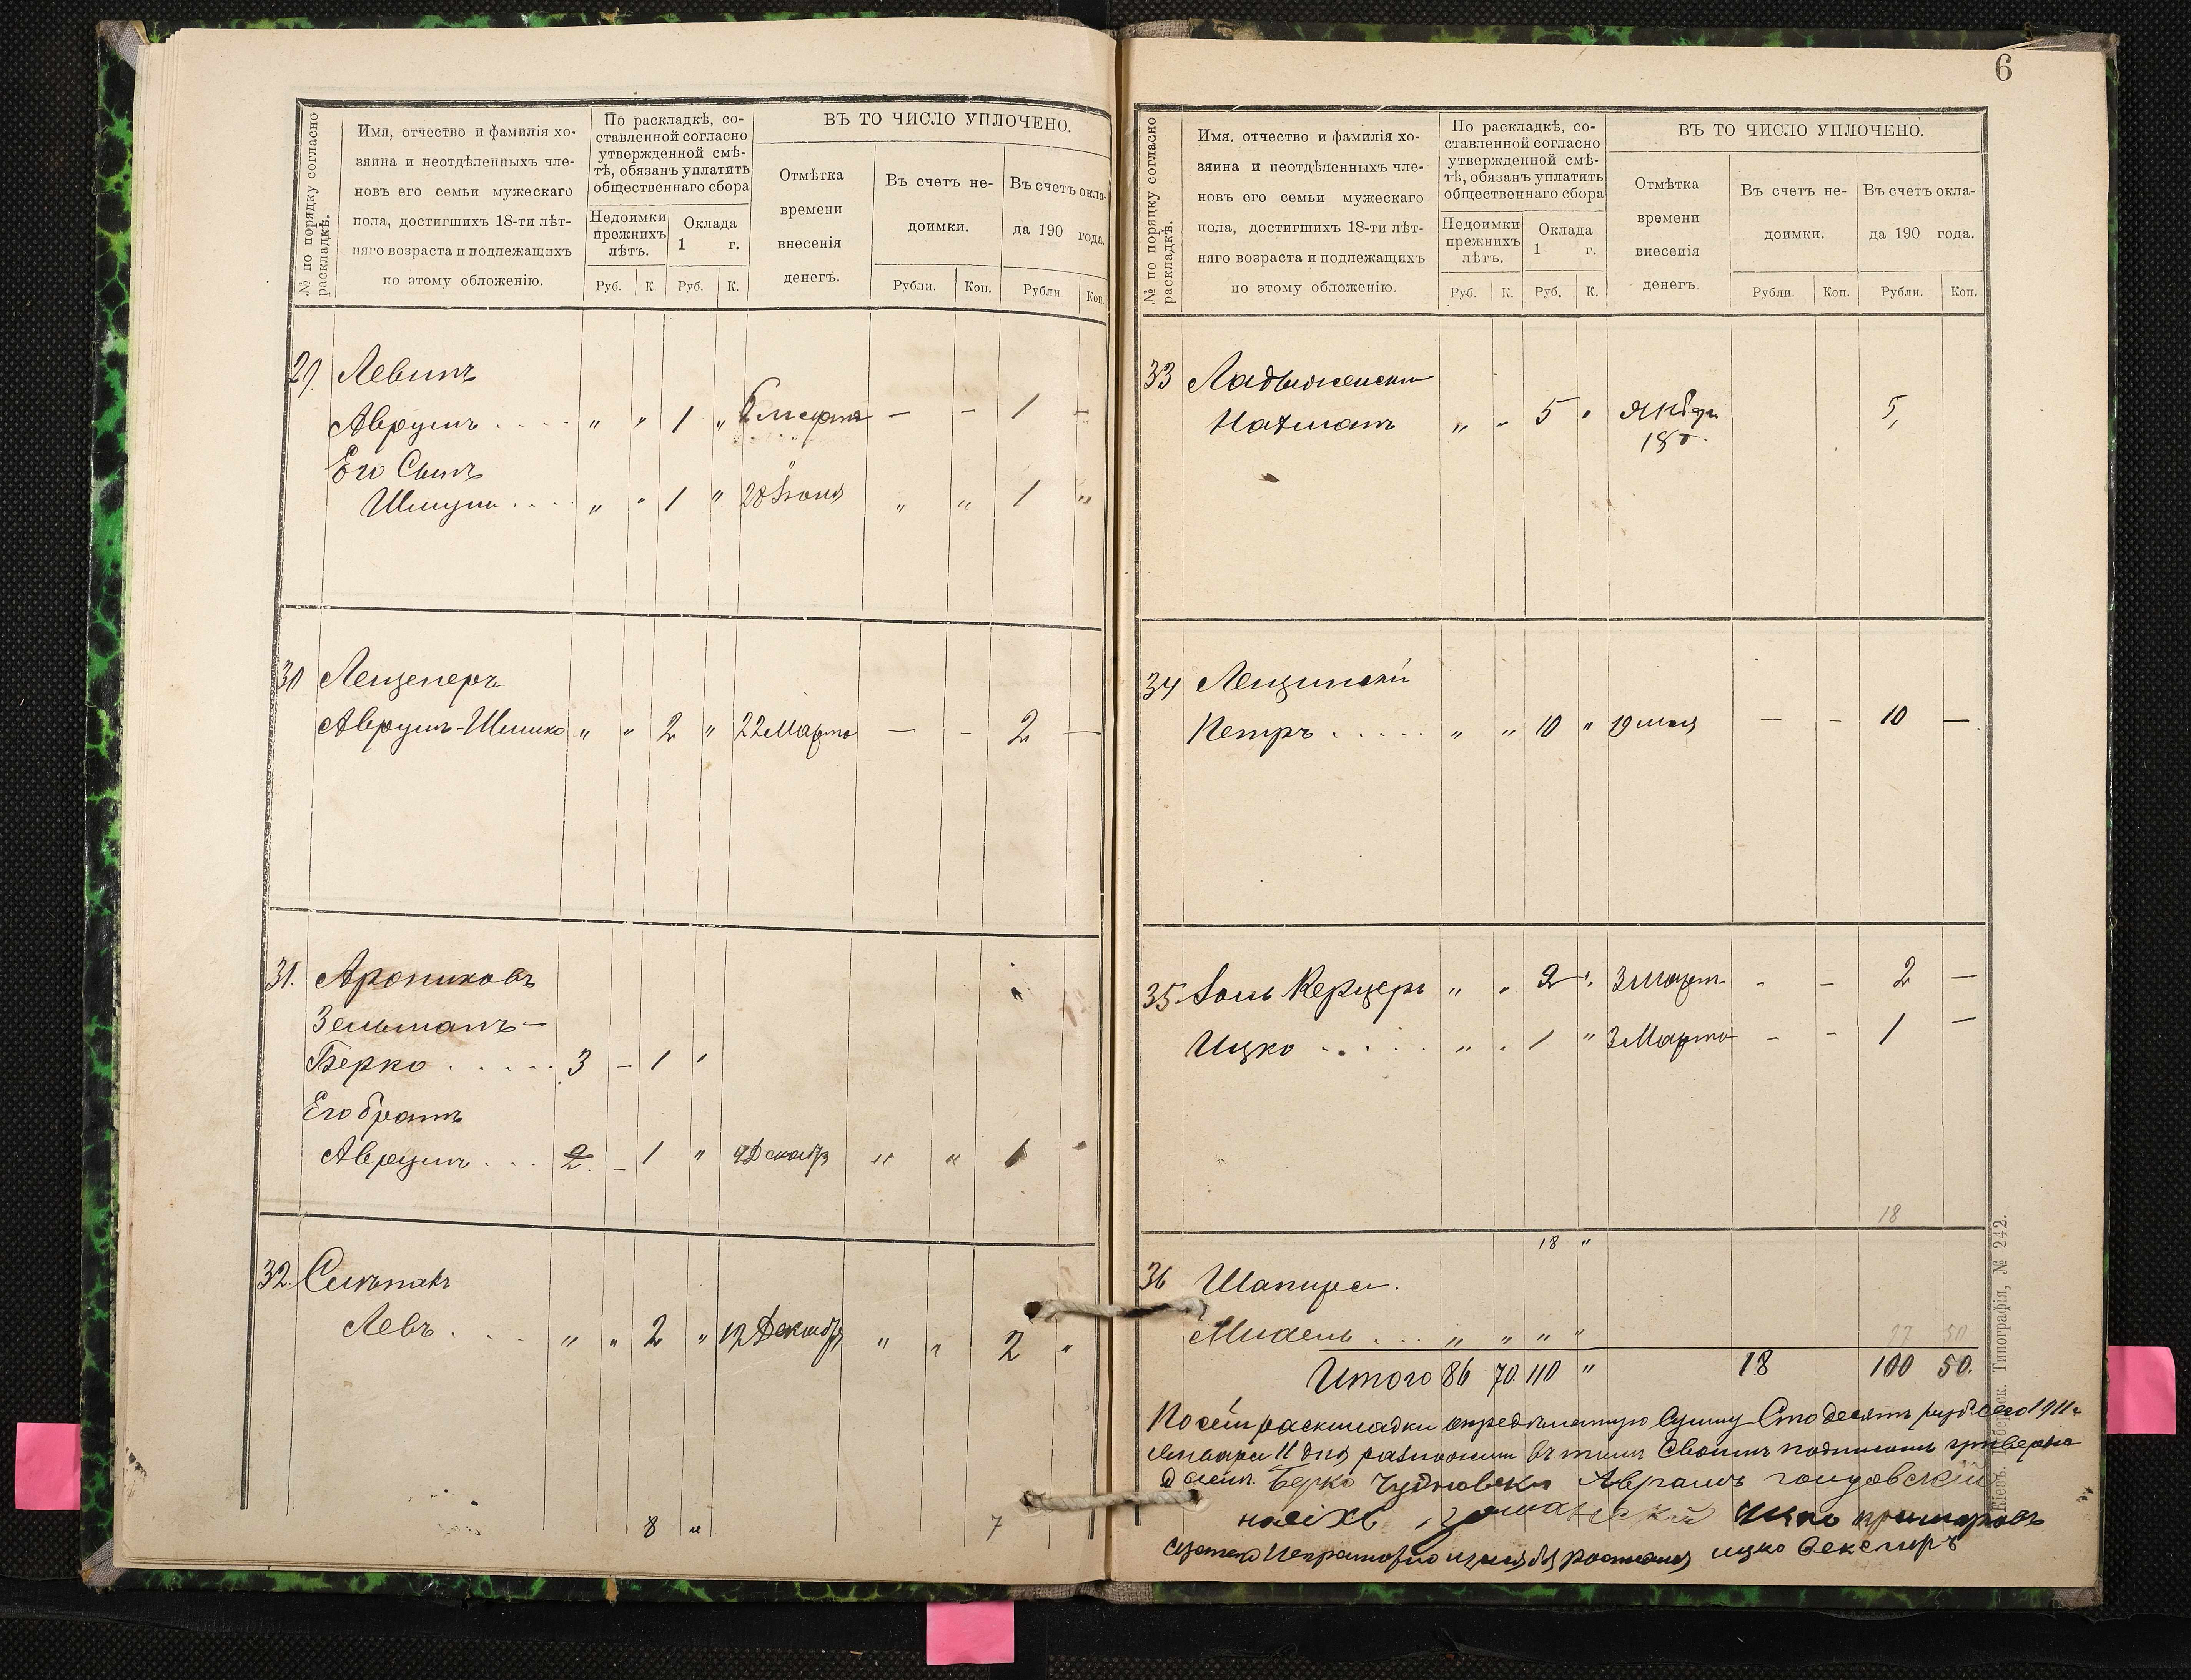 № по порядку согласно раскладкѣ.
Имя, отчество и фамилія хо-
зяина и неотдѣленныхъ чле-
новъ его семьи мужескаго
пола, достигшихъ 18-ти лѣт-
няго возраста и подлежащихъ
по этому обложенію.
По раскладкѣ, со-
ставленной согласно
утвержденной смѣ-
тѣ, обязанъ уплатить
общественнаго сбора
Недоимки прежнихъ лѣтъ.
Оклада 1 г.
Руб. К. Руб. К.
ВЪ ТО ЧИСЛО УПЛОЧЕНО.
Отмѣтка
времени
внесенія
денегъ.
Въ счетъ не-
доимки.
Въ счетъ окла-
да 190 года.
Рубли. Коп. Рубли Коп.
29. Левинъ
Аврумъ . . . . " " 1 " 6 марта — — 1 —
Его Сынъ
Шмуль . . . " " 1 " 28 Іюня " " 1 "
30 Лещенеръ
Аврумъ-Шмико " " 2 " 22 Марта — — 2 —
31. Арониковъ
Зельманъ —
Берко . . . . . 3 — 1 "
Его братъ
Аврумъ . . . 2. — 1 " 4 Декабр " " 1 "
32.
Левъ . . . " " 2 " 12 Декабр " " 2 "
8 " 7
6
№ по порядку согласно раскладкѣ.
Имя. отчество и фамилія хо-
зяина и неотдѣленныхъ чле-
новъ его семьи мужескаго
пола, достигшихъ 18-ти лѣт-
няго возраста и подлежащихъ
по этому обложенію.
По раскладкѣ, со-
ставленной согласно
утвержденной смѣ-
тѣ, обязанъ уплатить
общественнаго сбора
Недоимки прежнихъ лѣтъ.
Оклада 1 г.
Руб. К. Руб. К.
ВЪ ТО ЧИСЛО УПЛОЧЕНО.
Отмѣтка
времени
внесенія
денегъ.
Въ счетъ не-
доимки.
Въ счетъ окла-
да 190 года.
Рубли. Коп. Рубли. Коп.
33 Ладыженски
Нахманъ " " 5 " 5,
34 Лещинскій
Петръ . . . . . " " 10 " 19 мая — — 10 —
35. Керцеръ " " 2 " 3 Март. - — 2 —
Ицко . . . . . " " 1 " 3 Марта — — 1 —
18
18 "
36 Шапира.
Михель . . . " " " "
97 50
Итого 86 70 110 " 18 100 50.
По сей раскладки опредѣленную Сумму Сто десять руб. сего 1911 г
Января 11 дня въ томъ Своимъ
Берко Чудновски Аврамъ
Ицко
ицко
Кіевъ. Типографія, № 242.